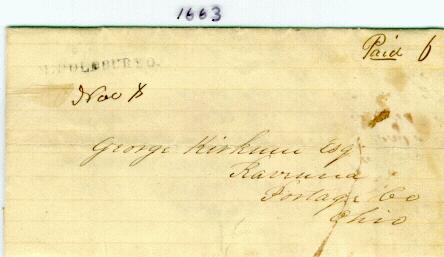 1663
Paid 6
Nov 8
George Kirkum Esq
Ravenna
Portage Co
Ohio